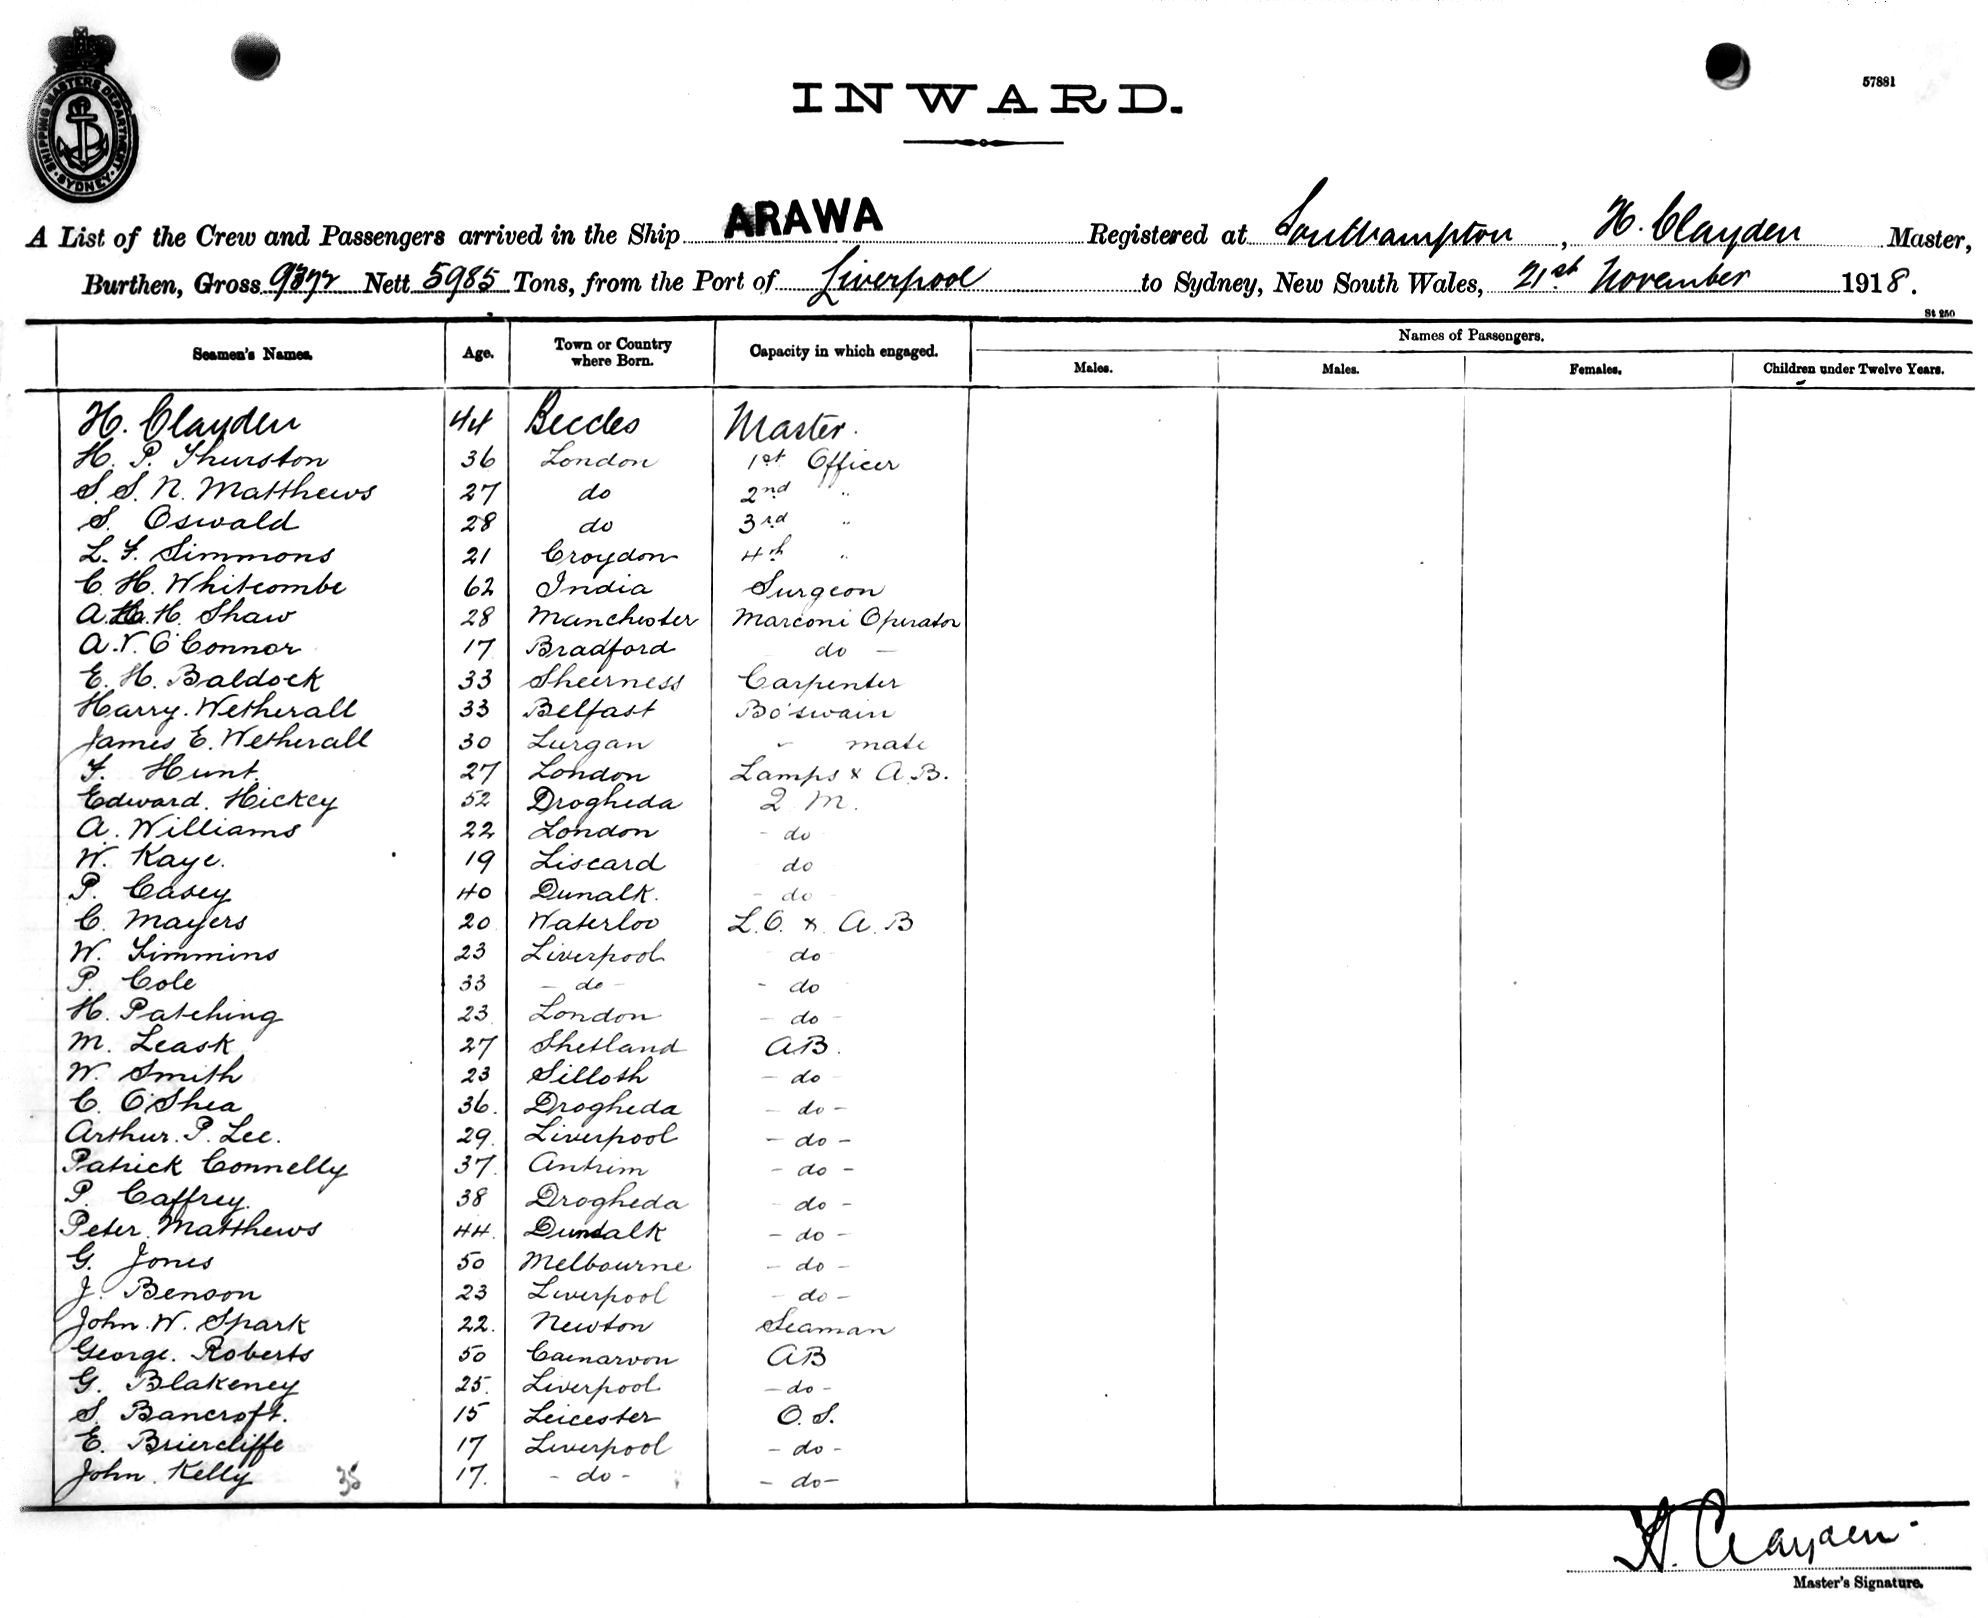 SHIPPING MASTERS DEPARTMENT
SYDNEY
57881
INWARD.
A List of the Crew and Passengers arrived in the Ship ARAWA Registered at Southampton, H. Clayden Master,
Burthen, Gross 9372 Nett 5985 Tons, from the Port of Liverpool to Sydney, New South Wales, 21st November 1918.
St 250
Names of Passengers.
Seamen's Names. Age. Town or Country where Born. Capacity in which engaged. Males. Males. Females. Children under Twelve Years.
H. Clayden 44 Beccles Master.
H. P. Thurston 36 London 1st Officer
S. S. N. Matthews 27 do 2nd "
S. Oswald 28 do 3rd "
L. F. Simmons 21 Croydon 4th "
C. H. Whitcombe 62 India Surgeon
A. H. Shaw 28 Manchester Marconi Operator
A. V. O'Connor 17 Bradford do -
E. H. Baldock 33 Sheerness Carpenter
Harry. Wetherall 33 Belfast Bo'swain
James E. Wetherall 30 Lurgan " mate
F. Hunt. 27 London Lamps & A.B.
Edward. Hickey 52 Drogheda Q. M.
A. Williams 22 London - do
W. Kaye. 19 Liscard do
P. Casey 40 Dunalk. - do -
C. Mayers 20 Waterloo L.O. & A.B
W. Timmins 23 Liverpool do
P. Cole 33 - do - - do
H. Patching 23 London - do -
M. Leask 27 Shetland AB.
W. Smith 23 Silloth - do
C. O'Shea 36. Drogheda - do -
Arthur. P. Lee. 29. Liverpool - do -
Patrick Connelly 37. Antrim - do -
P. Caffrey. 38 Drogheda - do -
Peter. Matthews 44. Dundalk - do -
G. Jones 50 Melbourne - do -
J. Benson 23 Liverpool - do -
John. W. Spark 22. Newton Seaman
George. Roberts 50 Caenarvon AB
G. Blakeney 25. Liverpool - do -
S. Bancroft. 15 Leicester O. S.
E. Briercliffe 17 Liverpool - do -
John. Kelly 35 17. - do - - do -
H. Clayden
Master's Signature.